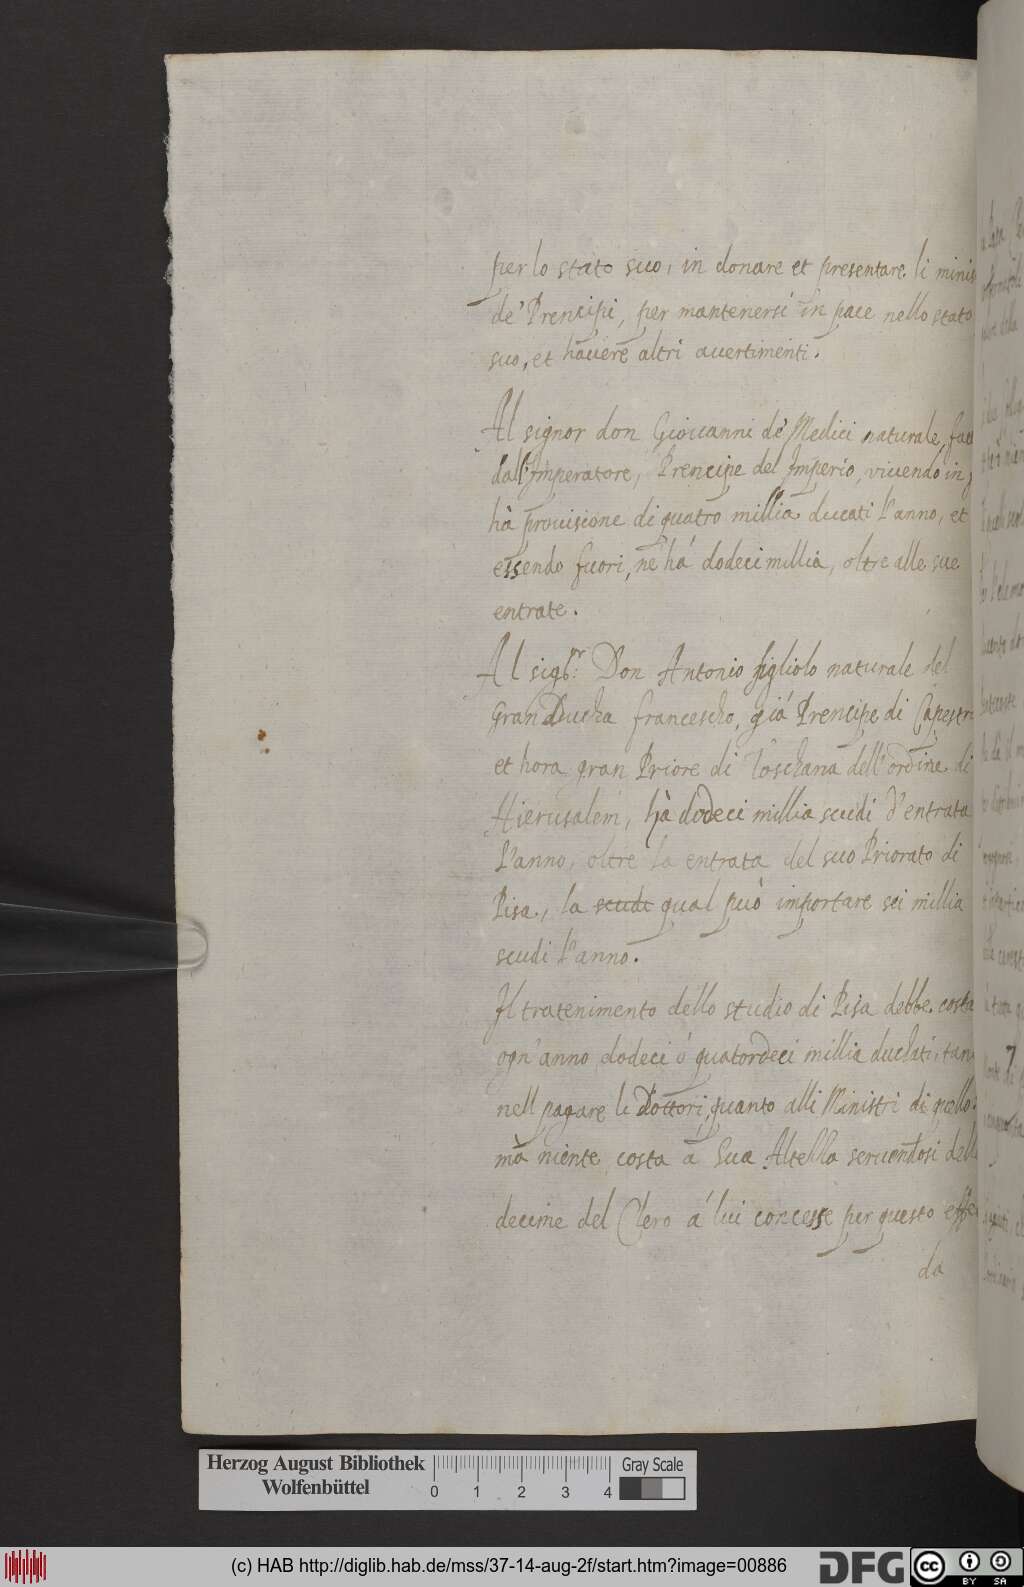 per lo stato suo, in donare et presentare li minis
de' Prencipi, per mantenersi in pace nello stato
suo, et havere altri avertimenti.
Al signor don Giovanni de' Medici naturale,
dall'Imperatore, Prencipe del Imperio, vivendo in
hà provisione di quatro millia ducati l'anno, et
essendo fuori, ne há dodeci millia, oltre alle sue
entrate.
Al sig.r Don Antonio figliolo naturale del
Gran Ducha francescho, giá Prencipe di Capestr
et hora gran Priore di Toschana dell'ordine di
Hierusalem, hà dodeci millia scudi d'entrata
l'anno, oltre la entrata del suo Priorato di
Pisa, la scudi qual può importare sei millia
scudi l'anno.
Il tratenimento dello studio di Pisa debbe costa
ogn'anno dodeci ó quatordeci millia duchati, tan
nell pagare li Dottori, quanto alli Ministri di quello.
mà niente costa a Sua Altezza servendosi dell
decime del Clero á lui concesse per questo effe
da
7
Herzog August Bibliothek
Wolfenbüttel
0 1 2 3 4
Gray Scale
(c) HAB http://diglib.hab.de/mss/37-14-aug-2f/start.htm?image=00886
DFG
cc
BY SA